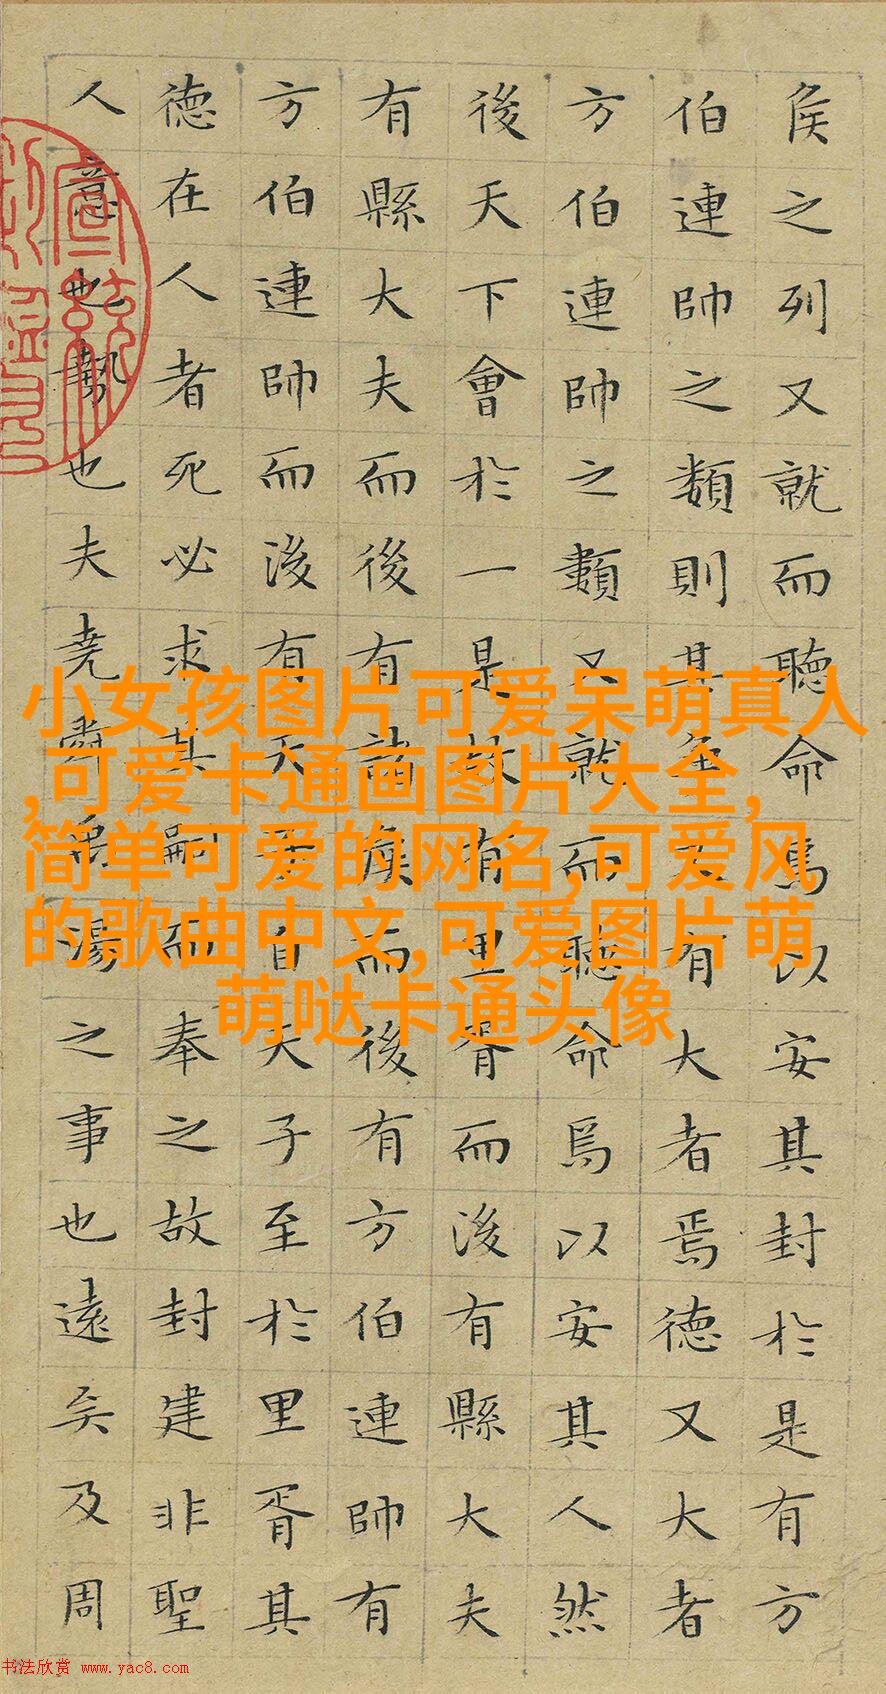 侯之列又就而聽命焉以安其封於是有方
伯連帥之類則其爭又有大者焉德又大者
方伯連帥之類又就而聽命焉以安其人然
後天下會於一是故有里胥而後有縣大夫
有縣大夫而後有諸侯而後有方伯連帥有
方伯連帥而後有天子自天子至於里胥其
德在人者死必求其嗣而奉之故封建非聖
人意也勢也夫堯舜禹湯之事也遠矣及周
小女孩图片可爱呆萌真人
,可爱卡通画图片大全,
简单可爱的网名,可爱风
的歌曲中文,可爱图片萌
萌哒卡通头像
书法欣赏 www.yac8.com